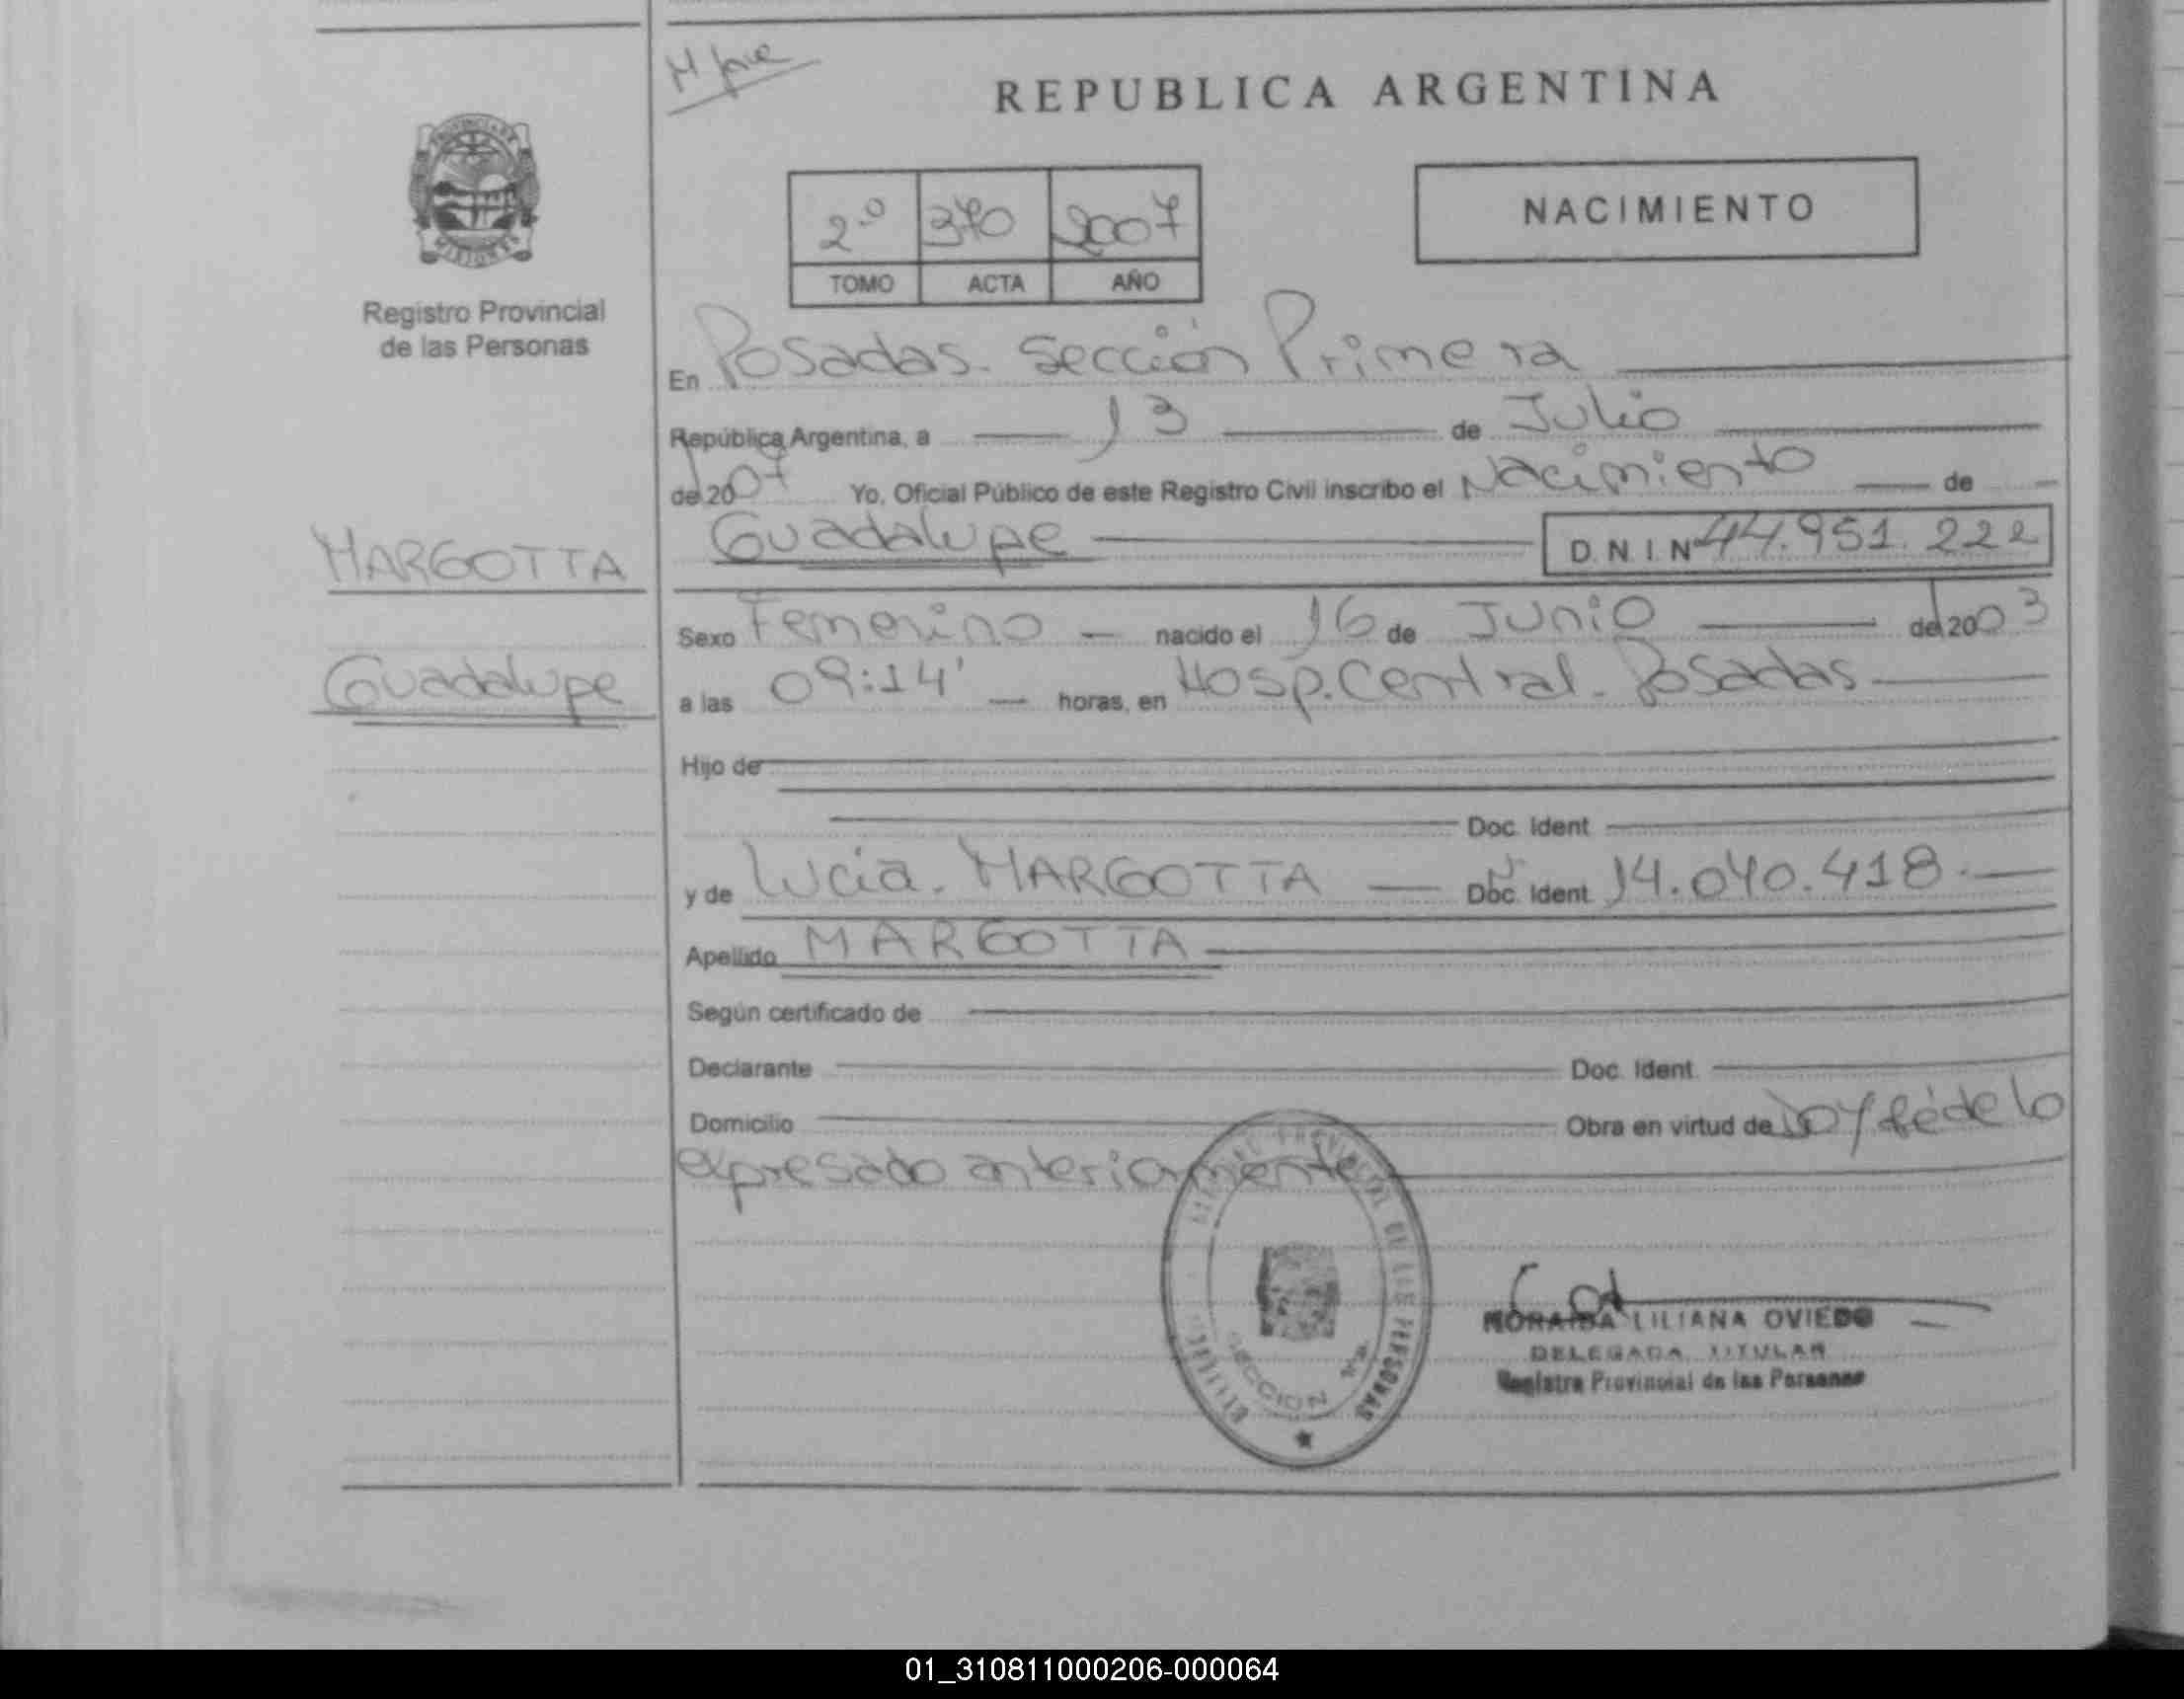 REPUBLICA ARGENTINA
PROVINCIA DE
MISIONES
Registro Provincial
de las Personas
2º 370 2007
TOMO ACTA AÑO
NACIMIENTO
En Posadas. Sección Primera
República Argentina, a 13 de Julio
del 2007 Yo, Oficial Público de este Registro Civil inscribo el Nacimiento de
MARGOTTA
Guadalupe
Guadalupe D.N.I.Nº 44.951.222
Sexo Femenino nacido el 16 de Junio del 2003
a las 09:14' horas, en Hosp. Central. Posadas
Hijo de
Doc. Ident.
y de Lucia. MARGOTTA Doc. Ident. 14.040.418.
Apellido MARGOTTA
Según certificado de
Declarante Doc. Ident.
Domicilio Obra en virtud de Doy fé de lo
expresado anteriormente
PROVINCIAL DE LAS PERSONAS
SECCION 1ra
MISIONES
NORAIDA LILIANA OVIEDO
DELEGADA TITULAR
Registro Provincial de las Personas
01_310811000206-000064